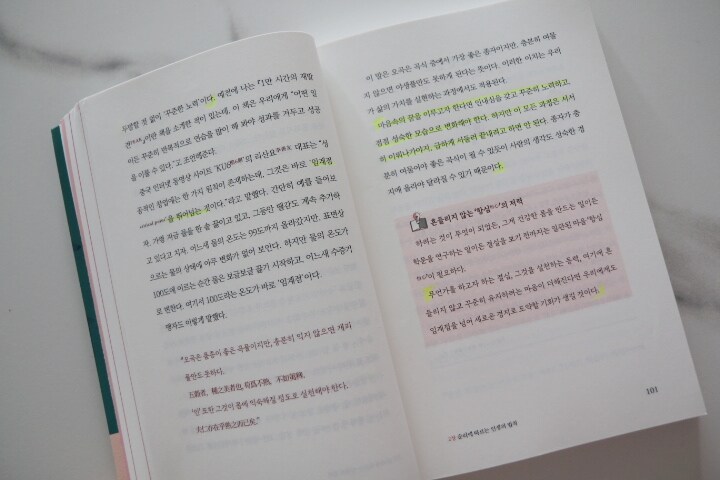 투명할 것 없이 '꾸준한 노력'이다. 예전에 나는 『1만 시간의 재발
견』이란 책을 소개한 적이 있는데, 이 책은 우리에게 "어떤 일
이든 꾸준히 반복적으로 연습을 많이 해 봐야 성과를 거두고 성공
을 이룰 수 있다."고 조언해준다.
중국 인터넷 동영상 사이트 'KU6'의 리산요 대표는 "성
공적인 창업에는 한 가지 원칙이 존재하는데, 그것은 바로 '임계점
critical point'을 뛰어넘는 것이다."라고 말했다. 간단히 예를 들어보
자. 가령 지금 물을 한 솥 끓이고 있고, 그동안 땔감도 계속 추가하
고 있다고 치자. 어느새 물의 온도는 99도까지 올라갔지만, 표면상
으로는 물의 상태에 아무 변화가 없어 보인다. 하지만 물의 온도가
100도에 이르는 순간 물은 보글보글 끓기 시작하고, 어느새 수증기
로 변한다. 여기서 100도라는 온도가 바로 '임계점'이다.
맹자도 이렇게 말했다.
"오곡은 품종이 좋은 곡물이지만, 충분히 익지 않으면 제피
풀만도 못하다.
五穀者, 種之美者也, 苟爲不熟, 不如荑稗,
'인' 또한 그것이 몸에 익숙하질 정도로 실천해야 한다.
夫仁亦在乎熟之而已矣."
이 말은 오곡은 곡식 중에서 가장 좋은 종자이지만, 충분히 여물
지 않으면 야생풀만도 못하게 된다는 뜻이다. 이러한 이치는 우리
가 삶의 가치를 실현하는 과정에서도 적용된다.
마음속의 꿈을 이루고자 한다면 인내심을 갖고 꾸준히 노력하고,
점점 성숙한 모습으로 변화해야 한다. 하지만 이 모든 과정은 서서
히 이뤄나가야지, 급하게 서둘러 끝내려고 하면 안 된다. 종자가 충
분히 여물어야 좋은 곡식이 될 수 있듯이 사람의 생각도 성숙한 경
지에 올라야 달라질 수 있기 때문이다.
흔들리지 않는 '항심'의 저력
하려는 것이 무엇이 되었든, 그게 건강한 몸을 만드는 일이든
학문을 연구하는 일이든 결실을 보기 전까지는 일관된 마음'항심
'이 필요하다.
무언가를 하고자 하는 결심, 그것을 실천하는 동력, 여기에 흔
들리지 않고 꾸준히 유지하려는 마음이 더해진다면 우리에게도
임계점을 넘어 새로운 경지로 도약할 기회가 생길 것이다.
101
2장 순리에 따르는 인생의 법칙